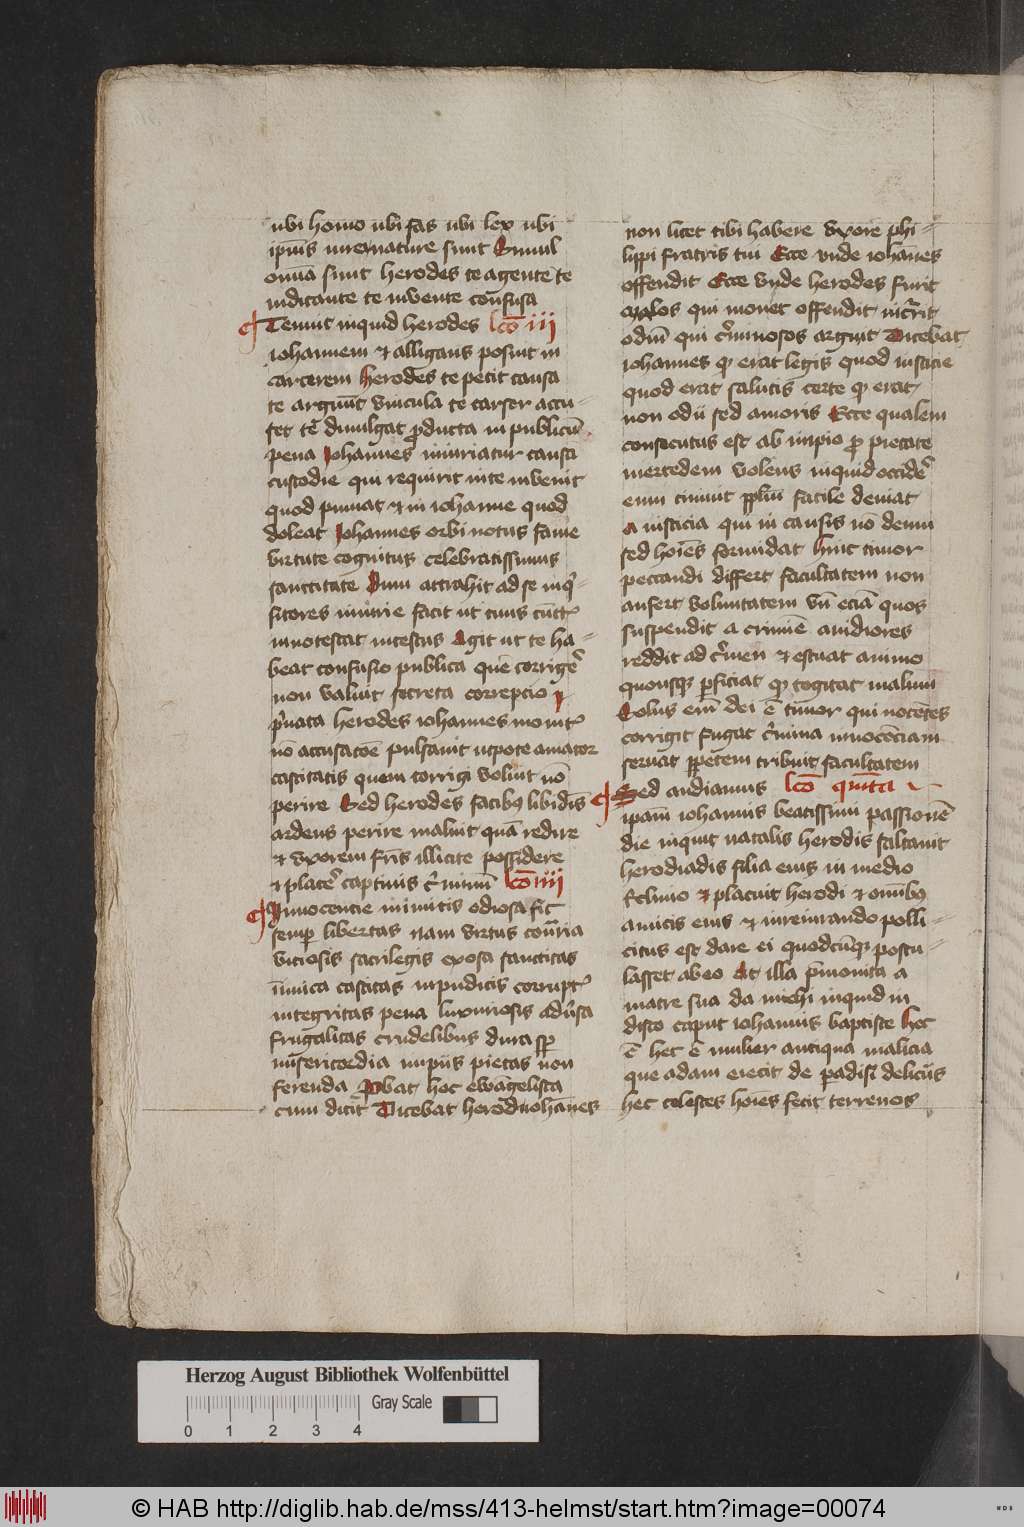 ubi homo ubi fas ubi lex ubi
ipius ure nature sunt Simul
omnia sunt herodes te agente te
iudicante te iubente confusa
Tenuit inquid herodes lcō iii
iohannem et alligans posuit in
carcerem herodes te petit causa
te arguūt vincula te carcer accu-
set te diuulgat producta in publicū
pena Johannes iniuriatur causa
custodie qui requirit in te inuenit
quod puniat et in iohanne quod
doleat Johannes orbi notus fame
virtute cognitus celebratissimus
sanctitate Dum attrahit ad se inqi-
sitores iniurie facit ut tuus
innotescat incestus Agit ut te ha-
beat confusio publica que corrige
non valuit secreta correpcio
puata herodes iohannes monit
nō accusacōe pulsauit utpote amator
castitatis quem corrigi voluit nō
perire Sed herodes facibus libidis
ardens perire maluit quā redire
et vxorem fris illicite possidere
et placere captiuis lcō iiii
Innocencie inimicis odiosa fit
semp libertas nam virtus cōtraria
viciosis sacrilegis exosa sanctitas
inimica castitas inpudicis corrupt
integritas pena luxuriosis aduersa
frugalitas crudelibus dura sp
misericordia impiis pietas non
ferenda pbat hoc ewāgelista
cum dicit Dicebat herodi iohānes
non licet tibi habere vxorē phi-
lippi fratris tui Ecce vnde iohānes
offendit Ecce vnde herodes furit
Malos qui monet offendit incurrit
odiū qui criminosos arguit Dicebat
iohannes quod erat legis quod iusticie
quod erat salutis certe quod erat
non odii sed amoris Ecce qualem
consecutus est ab impio pro pietate
mercedem volens inquid occidere
eum timuit pplm facile deuiat
A iusticia qui in causis nō deum
sed hoīes formidat hinc timor
peccandi differt facultatem non
aufert voluntatem vn̄ eciā quos
suspendit a crimine auidiores
reddit ad crimen et estuat animo
quousque perficiat quod cogitat malum
Solus em̄ dei ē timor qui nocētes
corrigit fugat crimina innocēciam
seruat perpetem tribuit facultatem
Sed audiamus lcō quīta
ipam iohannis beatissimi passionē
die inquit natalis herodis saltauit
herodiadis filia eius in medio
triclinio et placuit herodi et omībus
amicis eius et iureiurando polli-
citus est dare ei quodcūque postu-
lasset ab eo At illa pmonita a
matre sua da michi inquid in
disco caput iohannis baptiste hec
ē hec ē mulier antiqua malicia
que adam eiecit de padisi deliciis
hec celestes hoīes fecit terrenos
Herzog August Bibliothek Wolfenbüttel
Gray Scale
0 1 2 3 4
© HAB http://diglib.hab.de/mss/413-helmst/start.htm?image=00074